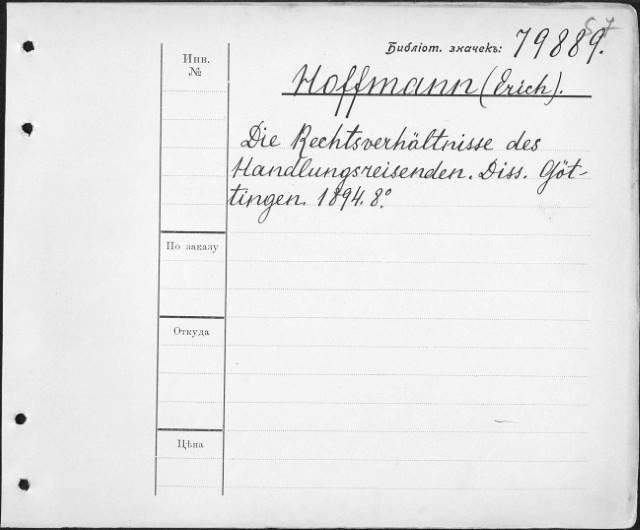 57
Библiот. значекъ: 79889.
Инв.
№
Hoffmann (Erich).
Die Rechtsverhältnisse des
Handlungsreisenden. Diss. Göt-
tingen. 1894. 8.°
По заказу
Откуда
Цѣна